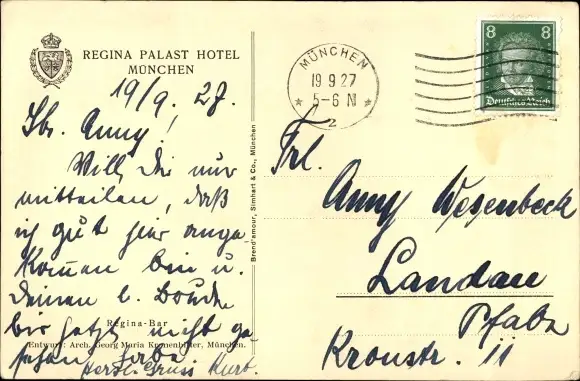 REGINA PALAST HOTEL
MÜNCHEN
19/9. 27.
Lbr. Anny!
Will Dir nur
mitteilen, daß
ich gut hier ange-
kommen bin u.
Deinen l. Bruder
bis jetzt nicht ge-
sehen habe
Herzl. Gruss Kurt.
Regina-Bar
Entwurf: Arch. Georg Maria Kronenbitter, München.
Brend'amour, Simhart & Co., München
MÜNCHEN
19 9.27
5-6 N
2
8 8
Deutsches Reich
Frl.
Anny Wesenbeck
Landau
Pfalz
Kronstr. 11